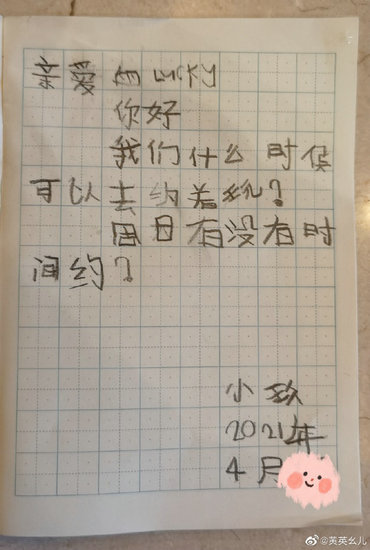 亲爱的 lucky
你好
我们什么时候
可以去约着玩?
周日有没有时
间约?
小玖
2021年
4月
@黄英幺儿